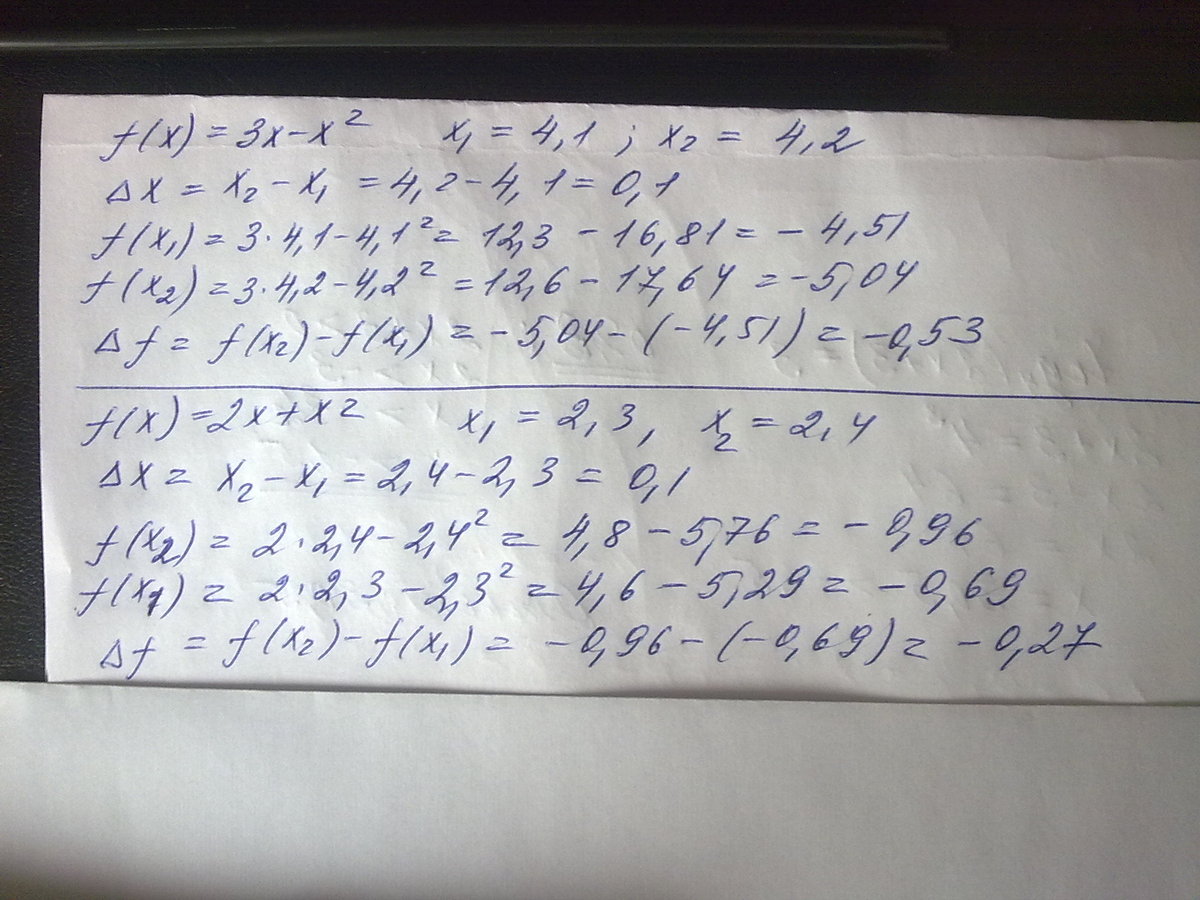 f(x) = 3x - x² x₁ = 4,1 ; x₂ = 4,2
Δx = x₂ - x₁ = 4,2 - 4,1 = 0,1
f(x₁) = 3·4,1 - 4,1² = 12,3 - 16,81 = -4,51
f(x₂) = 3·4,2 - 4,2² = 12,6 - 17,64 = -5,04
Δf = f(x₂) - f(x₁) = -5,04 - (-4,51) = -0,53
f(x) = 2x + x² x₁ = 2,3, x₂ = 2,4
Δx = x₂ - x₁ = 2,4 - 2,3 = 0,1
f(x₂) = 2·2,4 - 2,4² = 4,8 - 5,76 = -0,96
f(x₁) = 2·2,3 - 2,3² = 4,6 - 5,29 = -0,69
Δf = f(x₂) - f(x₁) = -0,96 - (-0,69) = -0,27